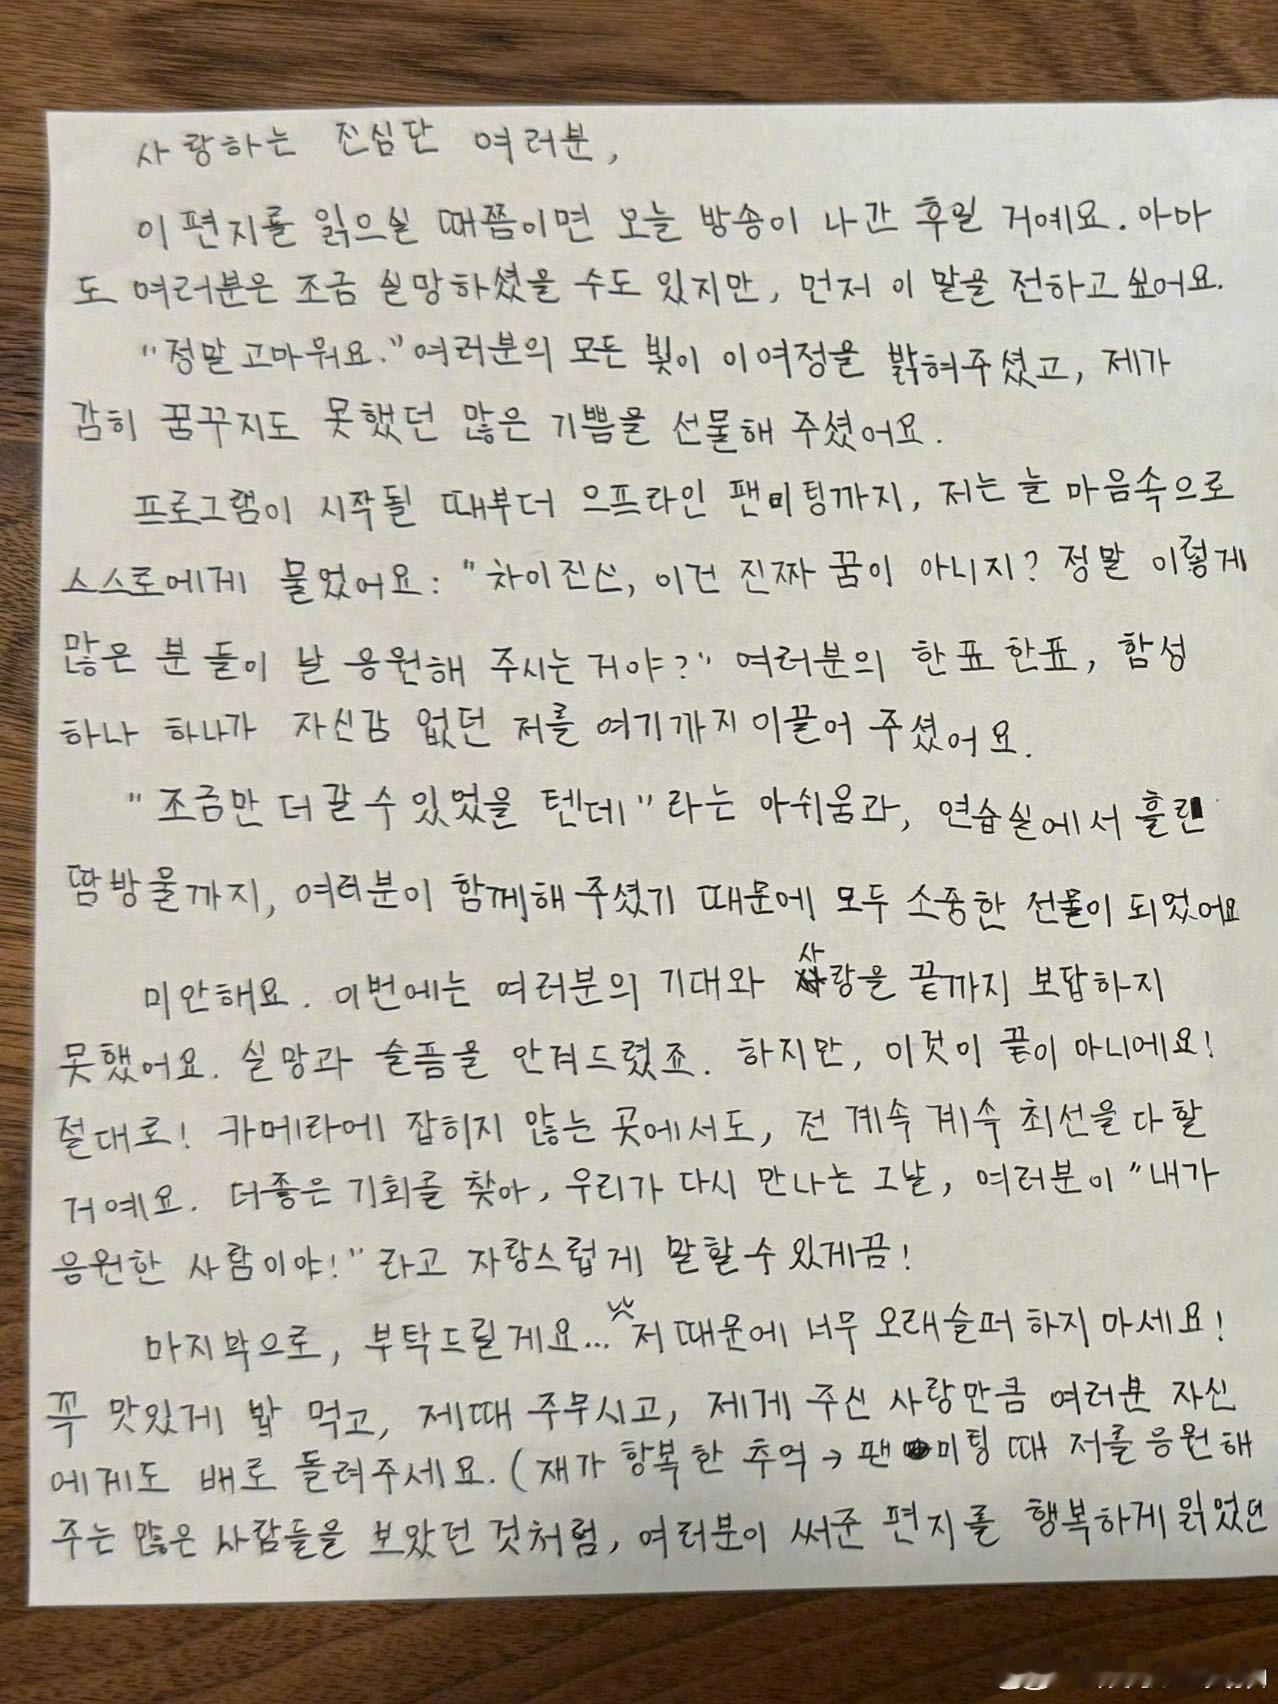 사랑하는 진심단 여러분,
이 편지를 읽으실 때쯤이면 오늘 방송이 나간 후일 거예요. 아마
도 여러분은 조금 실망하셨을 수도 있지만, 먼저 이 말을 전하고 싶어요.
"정말 고마워요." 여러분의 모든 빛이 이여정을 밝혀주셨고, 제가
감히 꿈꾸지도 못했던 많은 기쁨을 선물해 주셨어요.
프로그램이 시작될 때부터 으프라인 팬미팅까지, 저는 늘 마음속으로
스스로에게 물었어요: "차이진신, 이건 진짜 꿈이 아니지? 정말 이렇게
많은 분들이 날 응원해 주시는거야?" 여러분의 한표한표, 함성
하나 하나가 자신감 없던 저를 여기까지 이끌어 주셨어요.
"조금만 더 갈 수 있었을 텐데" 라는 아쉬움과, 연습실에서 흘린
땀방울까지, 여러분이 함께해 주셨기 때문에 모두 소중한 선물이 되었어요
미안해요. 이번에는 여러분의 기대와 사랑을 끝까지 보답하지
못했어요. 실망과 슬픔을 안겨드렸죠. 하지만, 이것이 끝이 아니에요!
절대로! 카메라에 잡히지 않는 곳에서도, 전 계속 계속 최선을 다할
거예요. 더좋은 기회를 찾아, 우리가 다시 만나는 그날, 여러분이 "내가
응원한 사람이야!" 라고 자랑스럽게 말할 수 있게끔!
마지막으로, 부탁드릴게요... 저 때문에 너무 오래슬퍼 하지 마세요!
꼭 맛있게 밥 먹고, 제때 주무시고, 제게 주신 사랑만큼 여러분 자신
에게도 배로 돌려주세요. (재가 항복한 추억 → 팬미팅 때 저를 응원해
주는 많은 사람들을 보았던 것처럼, 여러분이 써준 편지를 행복하게 읽었던